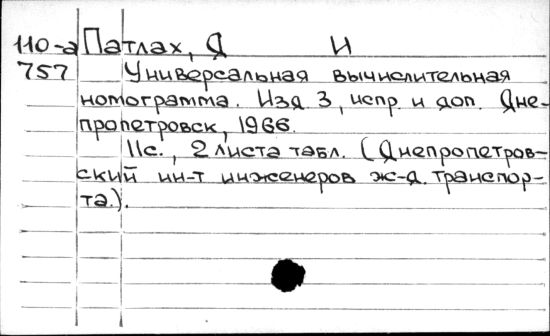 110-а Патлах, Я И
757 Универсальная вычислительная
номограмма. Изд 3, испр. и доп. Дне-
пропетровск, 1966.
11с., 2 листа табл. (Днепропетров-
ский ин-т инженеров ж-д. транспор-
та.).